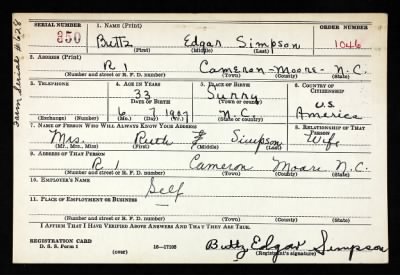 SERIAL NUMBER 1. NAME (Print) ORDER NUMBER
350 Buttz Edgar Simpson 1046
(First) (Middle) (Last)
3. ADDRESS (Print)
R 1 Cameron - Moore - N.C.
(Number and street or R. F. D. number) (Town) (County) (State)
3. TELEPHONE 4. AGE IN YEARS 5. PLACE OF BIRTH 6. COUNTRY OF CITIZENSHIP
33 Surry
DATE OF BIRTH (Town or county) U.S.
6 7 1907 N.C. America
(Exchange) (Number) (Mo.) (Day) (Yr.) (State or country)
7. NAME OF PERSON WHO WILL ALWAYS KNOW YOUR ADDRESS 8. RELATIONSHIP OF THAT PERSON
Mrs. Ruth Simpson Wife
(Mr., Mrs., Miss) (First) (Middle) (Last)
9. ADDRESS OF THAT PERSON
R 1 Cameron Moore N.C.
(Number and street or R. F. D. number) (Town) (County) (State)
10. EMPLOYER'S NAME
Self
11. PLACE OF EMPLOYMENT OR BUSINESS
(Number and street or R. F. D. number) (Town) (County) (State)
I AFFIRM THAT I HAVE VERIFIED ABOVE ANSWERS AND THAT THEY ARE TRUE.
REGISTRATION CARD
D. S. S. Form 1 16—17105 Buttz Edgar Simpson
(over) (Registrant's signature)
from serial #628